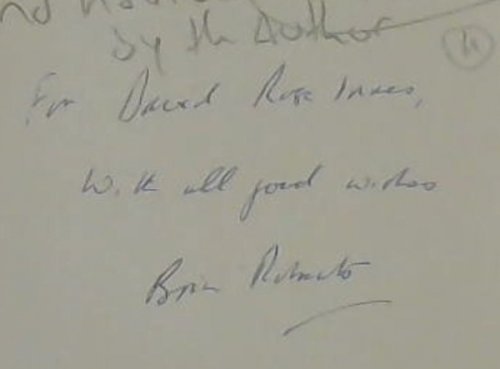 by the Author
For David Rose Innes,
With all good wishes
Brian Roberts